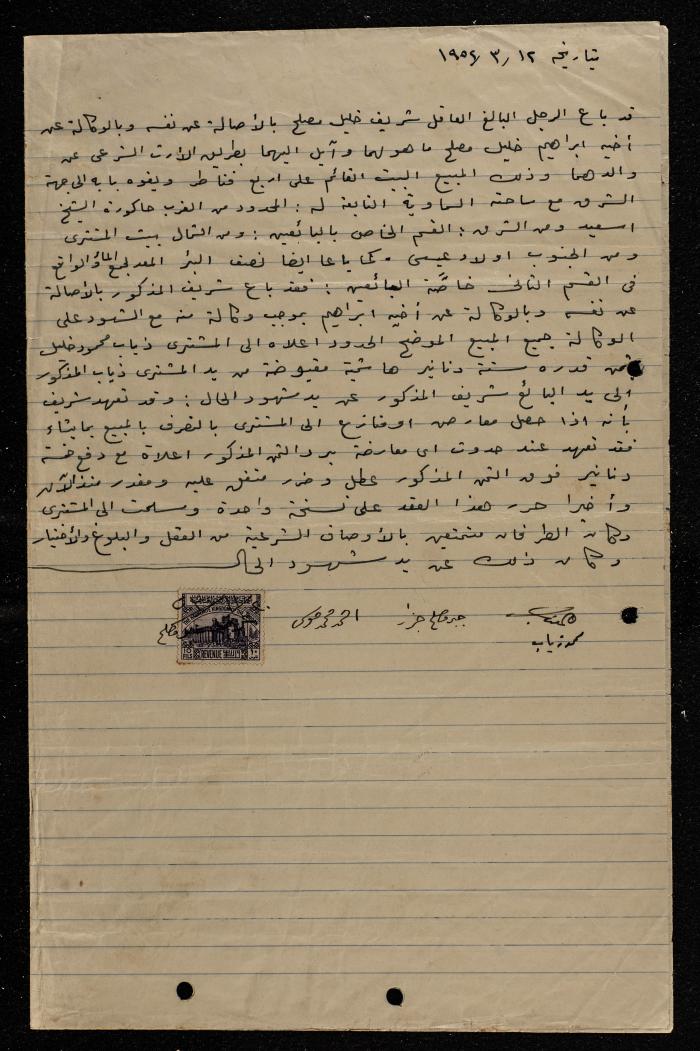 بتاريخ ١٢ / ٣ / ١٩٥٤
قد باع الرجل البالغ العاقل شريف خليل مصلح بالأصالة عن نفسه وبالوكالة عن
أخيه ابراهيم خليل مصلح ما هو لهما وآيل اليهما بطريق الارث الشرعي عن
والدهما وذلك المبيع البيت القائم على اربع قناطر وبفوه بابه الى جهة
الشرق مع ساحته السماوية التابعة له : المحدود من الغرب حاكورة الشيخ
اسعيد ومن الشرق : القسم الخاص بالبائعين : ومن الشمال بيت المشتري
ومن الجنوب اولاد عيسى . كما باعا ايضا نصف البئر المعد لجمع الماء والواقع
في القسم الثاني خاصّة البائعين : فقد باع شريف المذكور بالأصالة
عن نفسه وبالوكالة عن أخيه ابراهيم بموجب وكالة منه مع الشهود على
الوكالة جميع المبيع الموضح المحدود اعلاه الى المشتري ذياب محمود خليل
بثمن قدره ستة دنانير هاشمية مقبوضة من يد المشتري ذياب المذكور
الى يد البائع شريف المذكور عن يد شهود الحال : وقد تعهد شريف
بأنه اذا حصل معارض او منازع الى المشتري بالتصرف بالمبيع بما يشاء
فقد تعهد عند حدوث اي معارضة برد الثمن المذكور اعلاه مع دفع خمسة
دنانير فوق الثمن المذكور عطل وضرر متفق عليه ومقدر منذ الآن
وأخيرا حرر هذا العقد على نسخة واحدة وسلمت الى المشتري
وكان الطرفان متمتعين بالأوصاف الشرعية من العقل والبلوغ والأختيار
وكان ذلك عن يد شهود الحال
احمد محمد موسى
محمد ذياب
REVENUE